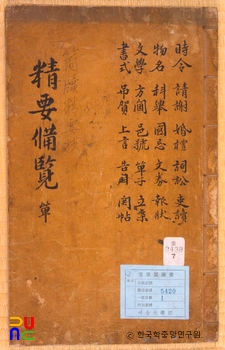 時令 請謝 婚禮 詞訟 吏讀
物名 科擧 國忌 文券 報狀
文學 方圓 邑號 單子 立案
書式 吊賀 上言 告目 関帖
精要備覽 單
7
5429
1
ⓒ 한국학중앙연구원